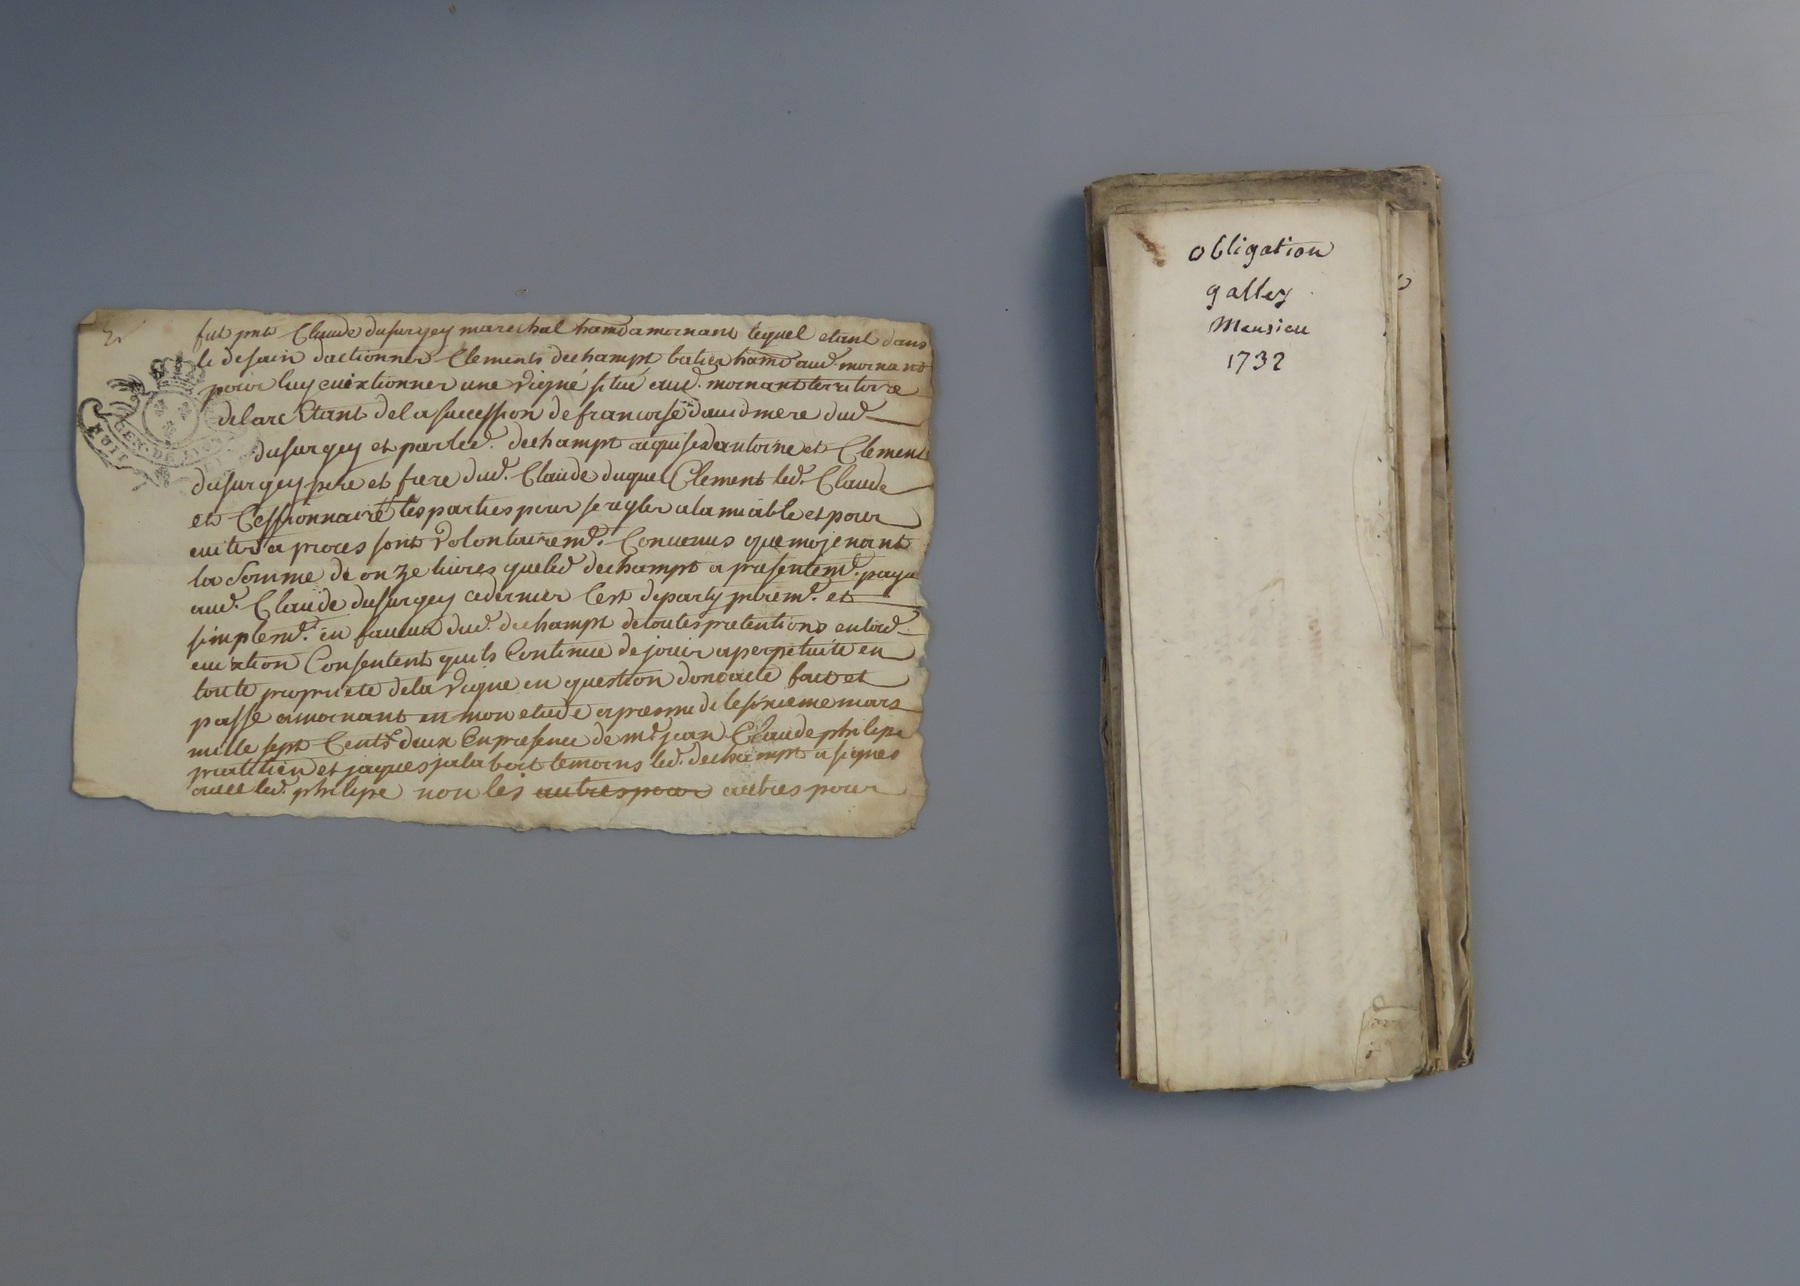 fut pnt Claude dusurgey mareschal hamt a mornant lequel etant dans
le desain dactionner Clement dechampt batier hamt aud. mornant
pour luy evixtionner une vigne situé aud. mornant territoire
delare Etant dela succession de francoise david mere dud.
dusurgey et par led. dechampt aquise dantoine et Clement
dusurgey pere et frere dud. Claude duquel Clement led. Claude
et Cessionnaire les parties pour se regler alamiable et pour
eviter a proces sont volontairemt. Convenus que mojenant
la Somme de onze livres que led dechampt a presentemt. paye
aud. Claude dusurgey cedernier Cest departy puremt. et
simplemt. en faveur dud. dechampt de toutes pretentions en lad.
evixtion Consentent quils Continue de jouir a perpetuite en
toute propriete dela vigne en question dont acte fait et
passé a mornant en mon etude apresmidi le sixieme mars
mille sept Cents deux En presence de mt. jean Claude philipe
praticien et jaques jalabert temoins led. dechampt a signes
avec led. philipe non les autres pour autres pour
GEN. DE LYON
HUIT
obligation
galley
Mensieu
1732